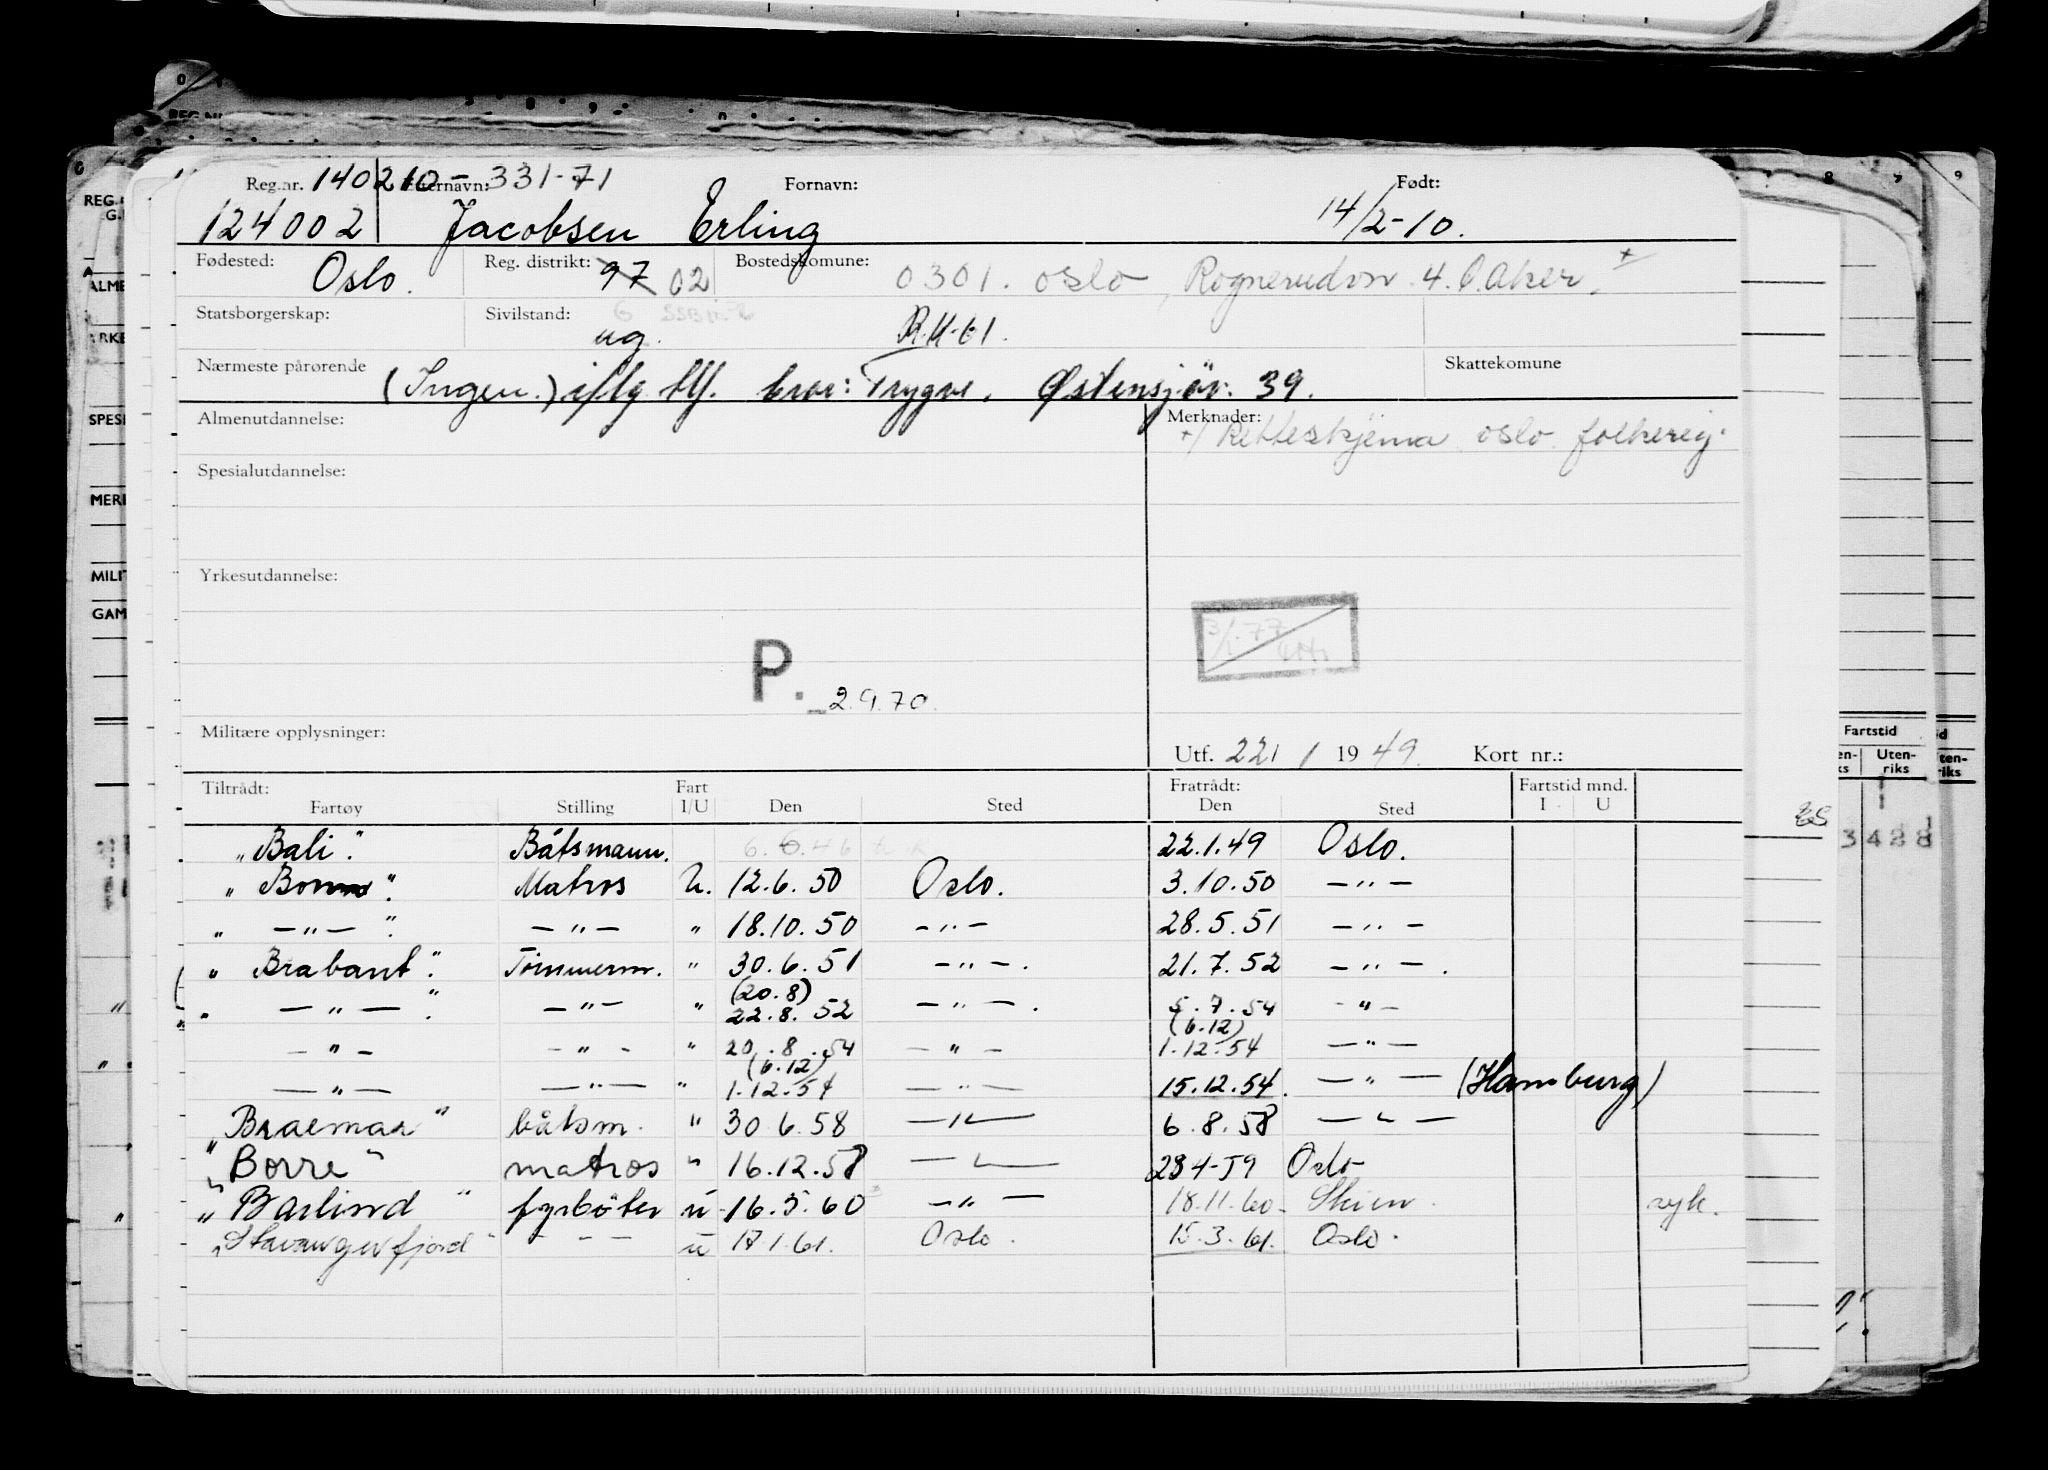 Reg.nr. 140210-331-71 Etternavn: Fornavn: Født:
124002 Jacobsen Erling 14/2-10.
Fødested: Oslo. Reg. distrikt: 97 02 Bostedskomune: 0301. oslo, Rognerudvn. 4. Ø.Aker. +
Statsborgerskap: Sivilstand: ug. R.U-61.
Nærmeste pårørende (Ingen.) iflg. tlf. bror: Trygve, Østensjøv. 39. Skattekomune
Almenutdannelse: Merknader:
+/ Retteskjema oslo folkereg.
Spesialutdannelse:
Yrkesutdannelse:
3/1.77
P. 2.9.70.
Militære opplysninger: Utf. 221 / 1949. Kort nr.:
Tiltrådt: Fart Fratrådt: Fartstid mnd.
Fartøy Stilling I/U Den Sted Den Sted I U
"Bali". Båtsmann. 6.6.46 22.1.49 Oslo.
" ". Matros U. 12.6.50 Oslo. 3.10.50 — " —
" — " — ". — " — " 18.10.50 — " — 28.5.51 — " —
" Brabant". Tømmerm. " 30.6.51 — " — . 21.7.52 — " — .
(20.8)
" — " — ". — " — " 22.8.52 — " — . 5.7.54 — " —
(6.12)
— " — — " — " 20.8.54 — " — 1.12.54 — " —
(6.12)
— " — — " — " 1.12.54 — " — 15.12.54. — " — (Hamburg)
"Braemar" båtsm. " 30.6.58 — " — 6.8.58 — " —
"Borre" matros " 16.12.58 — " — 28 4-59 Oslo
"Barlind" fyrbøter u 16.5.60 — " — 18.11.60. Skien. syk.
"Stavangerfjord" — — — u 17.1.61. Oslo. 15.3.61. Oslo.
Fartstid
Uten-
riks
3428
REG.
MERK
MILIT
GAM